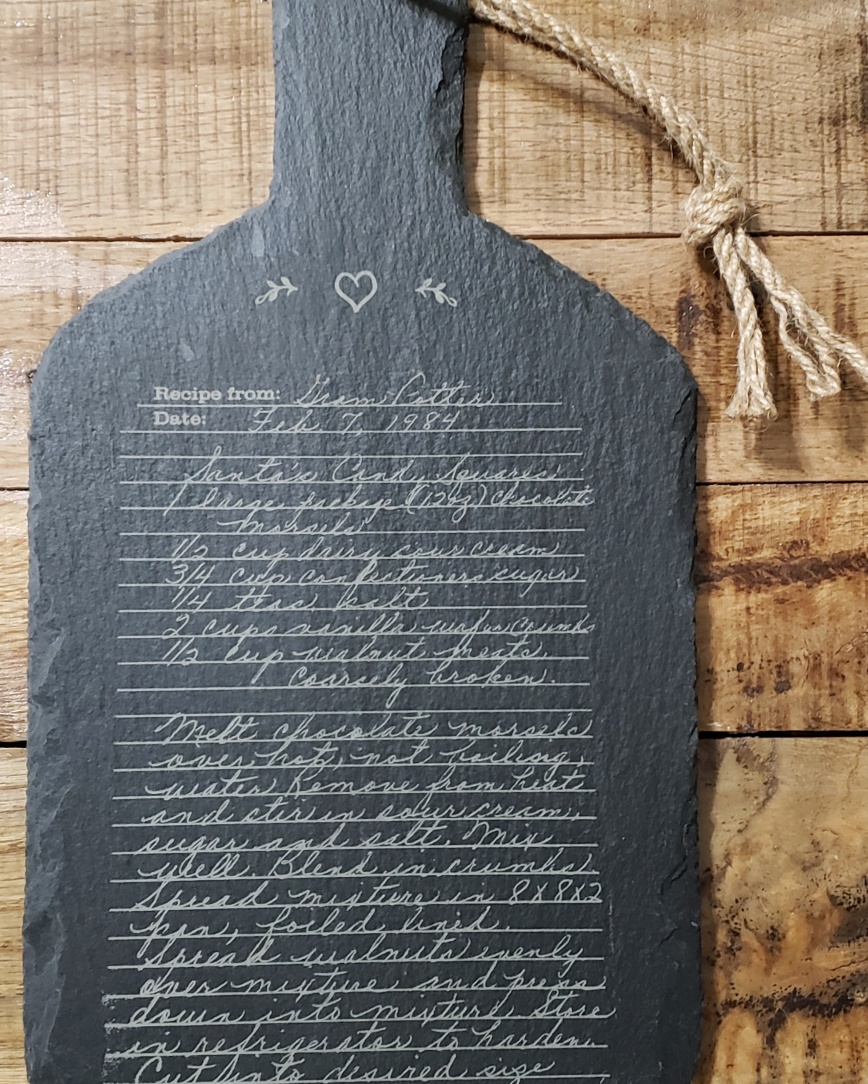 Recipe from: Gram Potter
Date: Feb 7, 1984
Santa's Cand, Squares
1 large package (12 oz) chocolate
morsels
1/2 cup dairy sour cream
3/4 cup confectioners sugar
1/4 teas salt
2 cups vanilla wafer crumbs
1/2 cup walnut meats,
coarsely broken.
Melt chocolate morsels
over hot, not boiling,
water. Remove from heat
and stir in sour cream,
sugar and salt. Mix
well. Blend in crumbs.
Spread mixture in 8x8x2
pan, foiled lined.
Spread walnuts evenly
over mixture and press
down into mixture. Store
in refrigerator to harden.
Cut into desired size